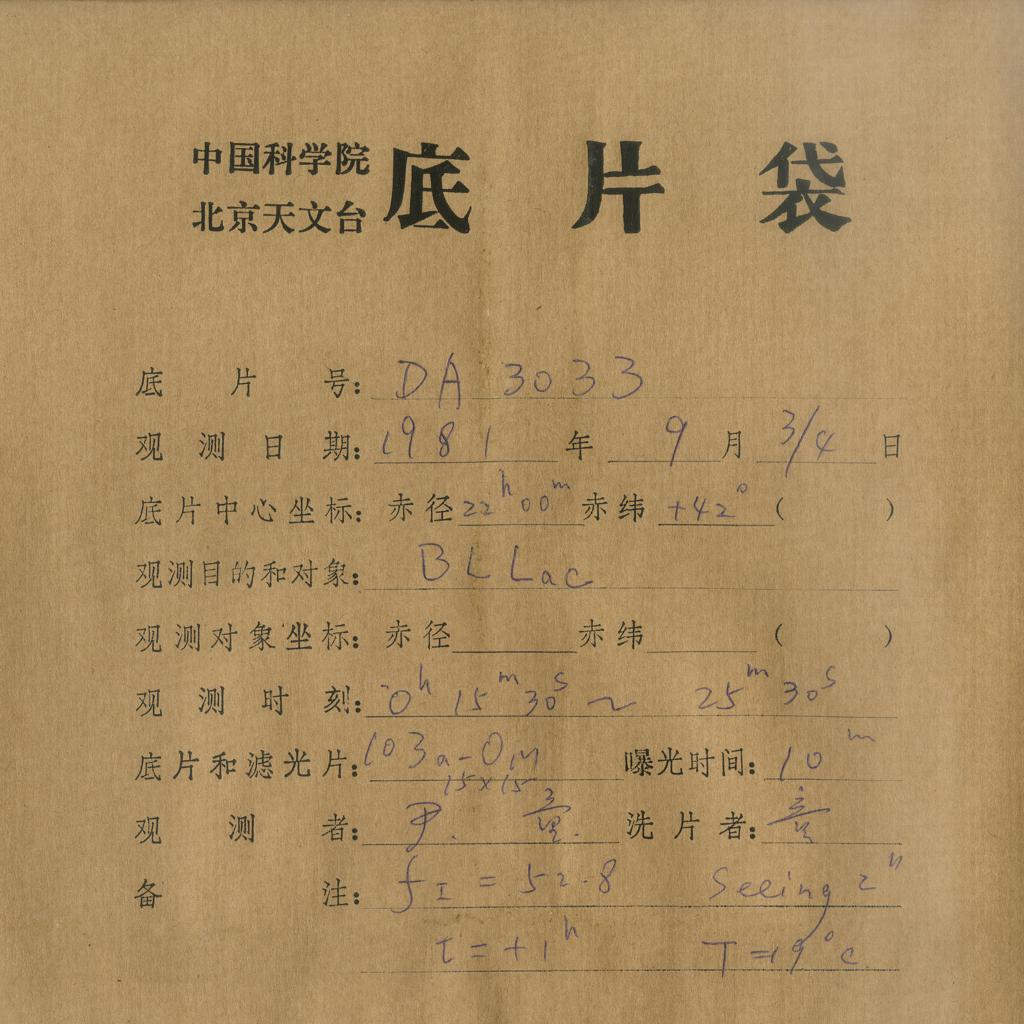 中国科学院
北京天文台
底片袋
底片号: DA 3033
观测日期: 1981 年 9 月 3/4 日
底片中心坐标: 赤径 22h 00m 赤纬 +42° ( )
观测目的和对象: BL Lac
观测对象坐标: 赤径 赤纬 ( )
观测时刻: 0h 15m 30s ~ 25m 30s
底片和滤光片: 103a-O 曝光时间: 10m
15×15
观测者: 洗片者:
备注: fI = 52.8 Seeing 2"
t = +1h T = 19°c